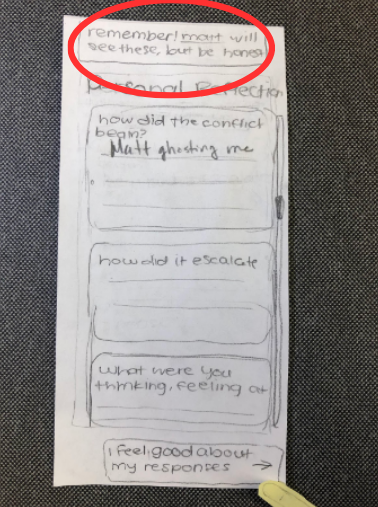 remember! matt will
see these, but be honest
Personal Reflection
how did the conflict
begin?
Matt ghosting me
how did it escalate
what were you
thinking, feeling at
I feel good about
my responses →